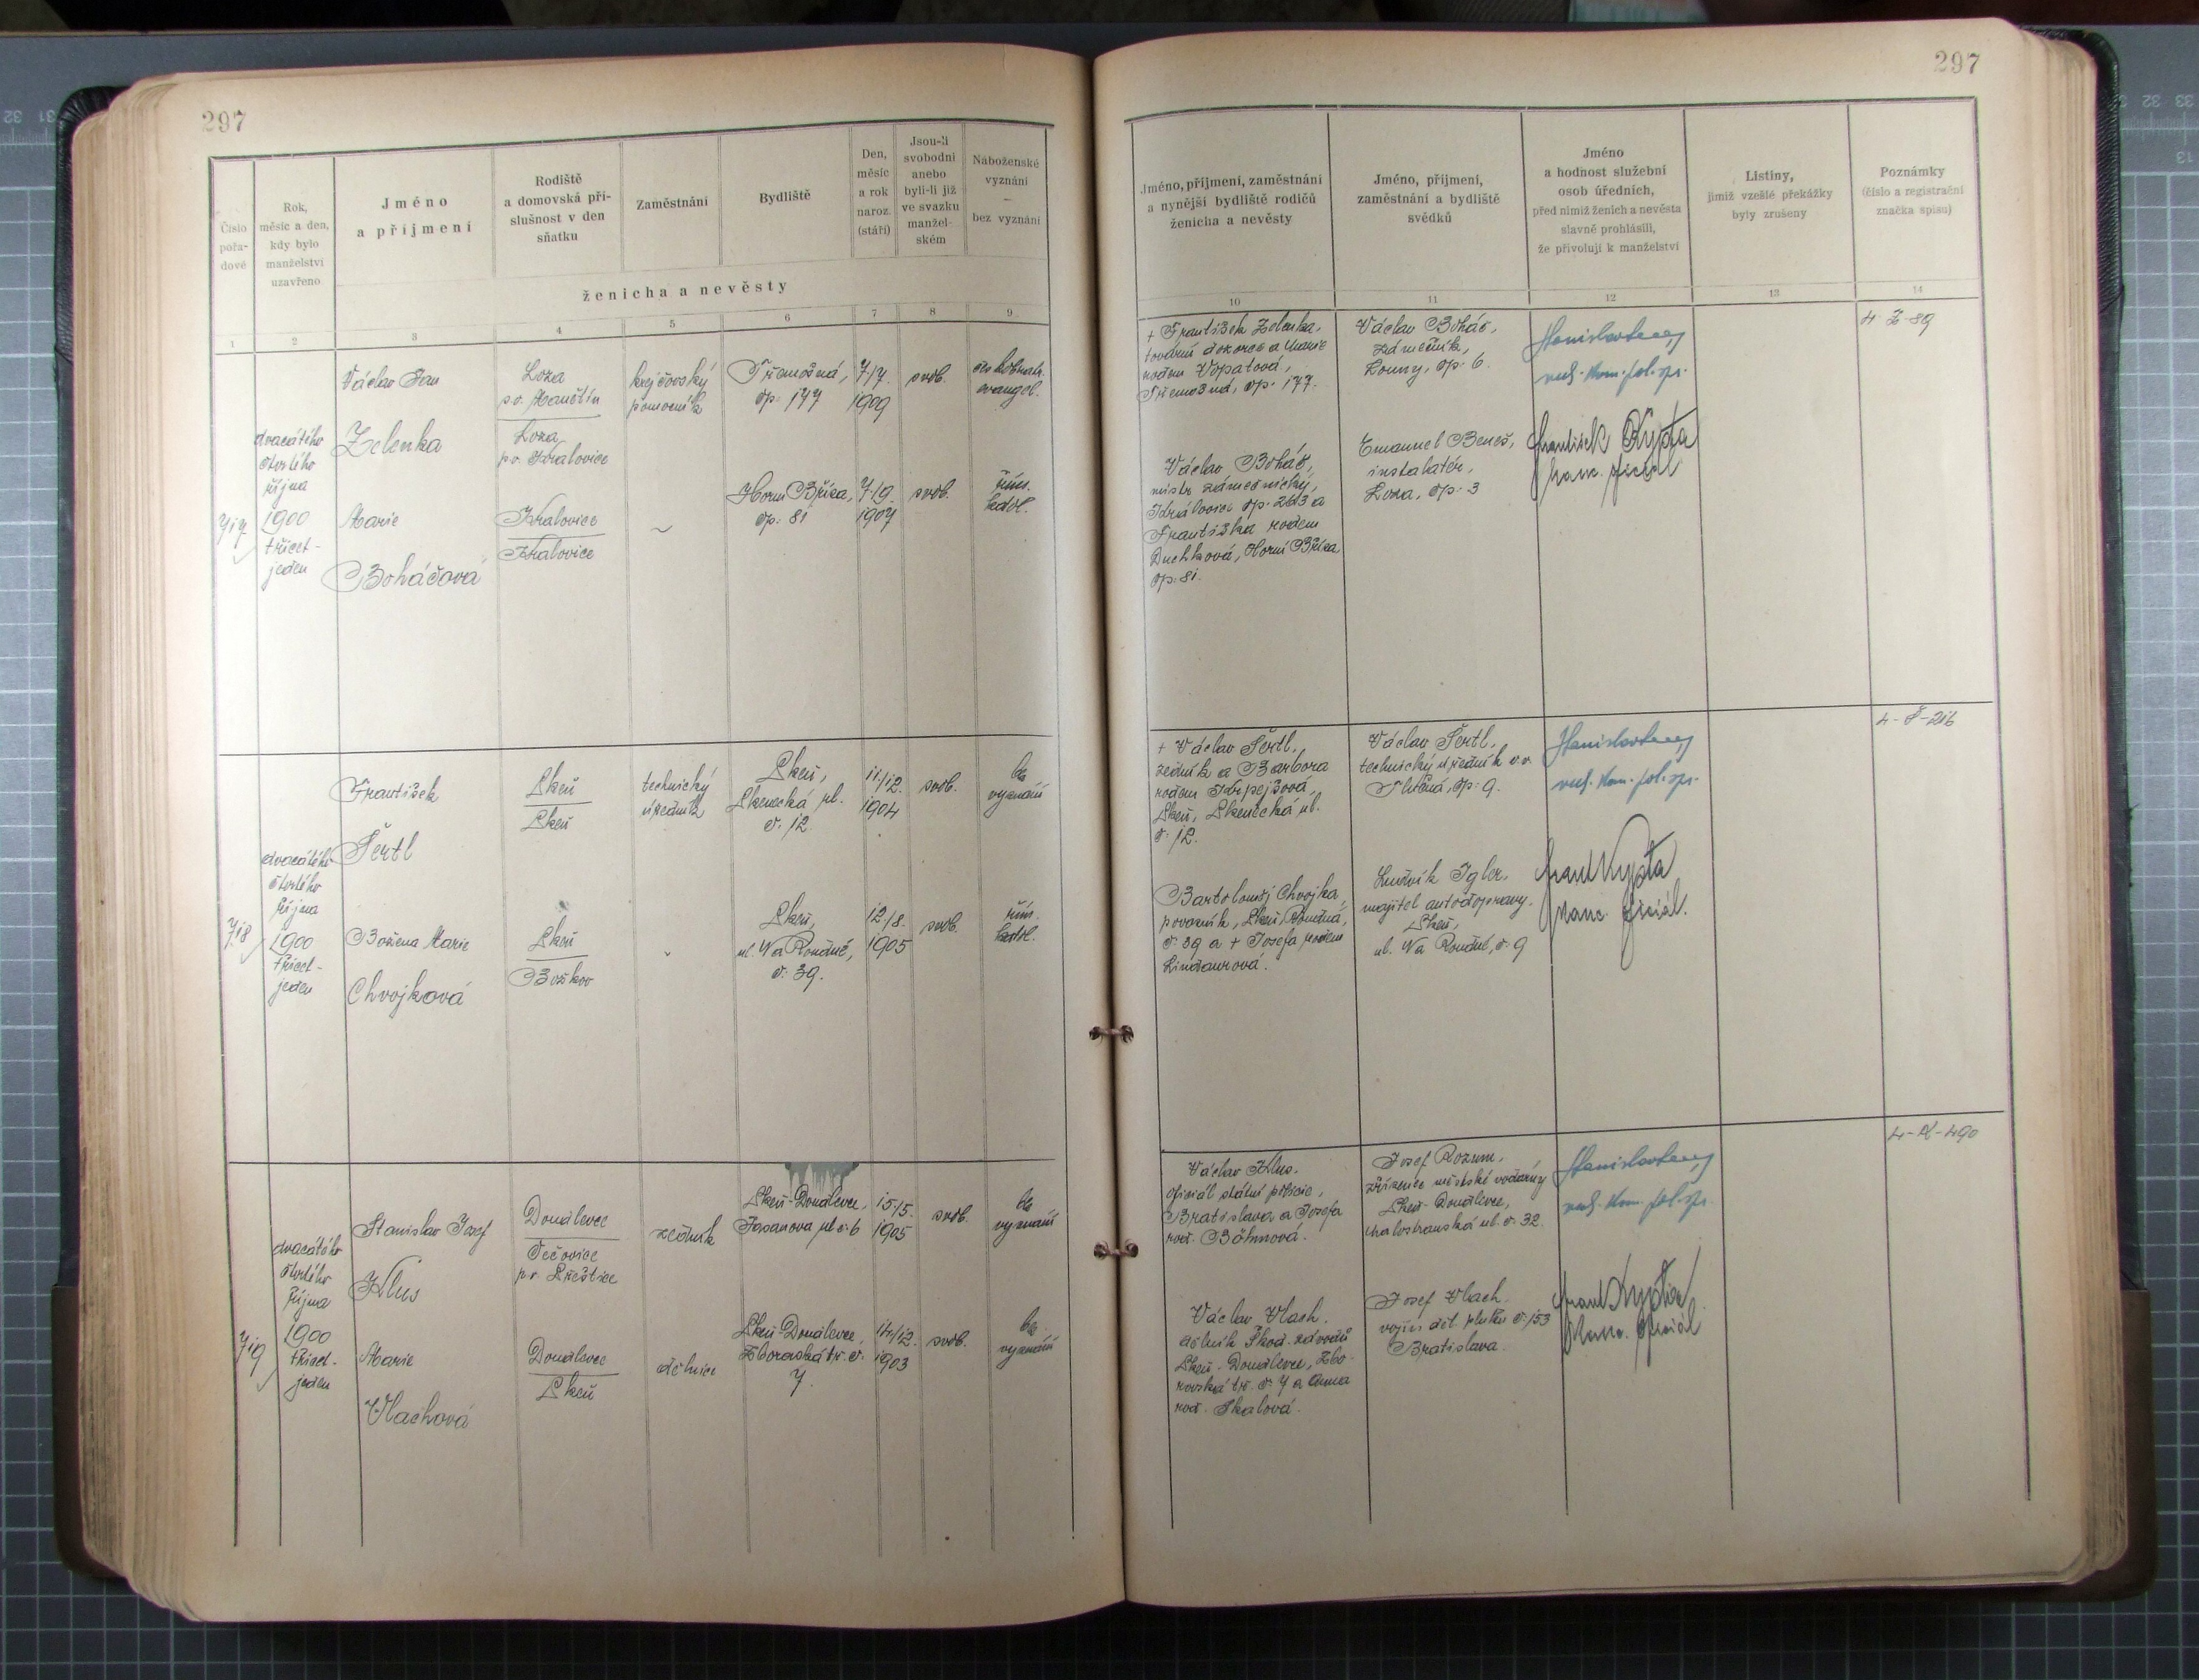 297
Číslo
pořa-
dové
Rok,
měsíc a den,
kdy bylo
manželství
uzavřeno
Jméno
a příjmení
Rodiště
a domovská pří-
slušnost v den
sňatku
Zaměstnání
Bydliště
Den,
měsíc
a rok
naroz.
(stáří)
Jsou-li
svobodni
anebo
byli-li již
ve svazku
manžel-
ském
Náboženské
vyznání
—
bez vyznání
ženicha a nevěsty
1 2 3 4 5 6 7 8 9
717
dvacátého
čtvrtého
října
1900
třicet-
jeden
Václav Jan
Zelenka
Loza
p.o. Manětín
Loza
p.o. Kralovice
krejčovský
pomocník
Třemošná,
čp. 177
7/7.
1909
svob.
evangel.
Marie
Boháčová
Kralovice
Kralovice
~
Horní Bříza,
čp. 81
7./9.
1907
svob.
řím.
katol.
718
dvacátého
čtvrtého
října
1900
třicet-
jeden
František
Šertl
Plzeň
Plzeň
technický
úředník
Plzeň,
Plzenecká ul.
č. 12.
11./12.
1904
svob.
bez
vyznání
Božena Marie
Chvojková
Plzeň
Božkov
Plzeň,
ul. Na Roudné,
č. 39.
12./8.
1905
svob.
řím.
katol.
719
dvacátého
čtvrtého
října
1900
třicet-
jeden
Stanislav Josef
Klus
Doudlevce
p.o. Přeštice
zedník
Plzeň-Doudlevce,
15./5.
1905
svob.
bez
vyznání
Marie
Vlachová
Doudlevce
Plzeň
dělnice
Plzeň-Doudlevce,
Zborovská tř. č.
7.
14./12.
1903
svob.
bez
vyznání
297
Jméno, příjmení, zaměstnání
a nynější bydliště rodičů
ženicha a nevěsty
Jméno, příjmení,
zaměstnání a bydliště
svědků
Jméno
a hodnost služební
osob úředních,
před nimiž ženich a nevěsta
slavně prohlásili,
že přivolují k manželství
Listiny,
jimiž vzešlé překážky
byly zrušeny
Poznámky
(číslo a registrační
značka spisu)
10 11 12 13 14
+ František Zelenka,
tovární dozorce a Marie
rodem Vopatová,
Třemošná, čp. 177.
Václav Boháč,
zámečník,
Louny, čp. 6.
4-Z-89
Václav Boháč,
mistr zámečnický,
Kralovice čp. 263 a
Františka rodem
Duchková, Horní Bříza
čp. 81.
Emanuel Beneš,
instalatér,
Loza, čp. 3
František Kypta
kanc. oficiál
+ Václav Šertl,
zedník a Barbora
rodem
Plzeň, Plzenecká ul.
č. 12.
Václav Šertl,
technický úředník v.v.
čp. 9.
4-Š-216
Bartoloměj Chvojka,
povozník, Plzeň, Roudná,
č. 39 a + Josefa rodem
Lindaurová.
Ludvík Igler,
majitel autodopravy,
Plzeň,
ul. Na Roudné, č. 9
Frant Kypta
kanc. oficiál.
Václav Klus,
oficiál státní policie,
Bratislava a Josefa
roz. Böhmová.
Josef Rozum,
zřízenec městské vodárny
Plzeň-Doudlevce,
Malostranská ul. č. 32.
4-K-490
Václav Vlach,
dělník Škod. závodů
Plzeň-Doudlevce, Zbo-
rovská tř. č. 7 a Anna
roz. Skalová.
Josef Vlach,
vojín děl. pluku č. 153
Bratislava.
Frant Kypta
kanc. oficiál